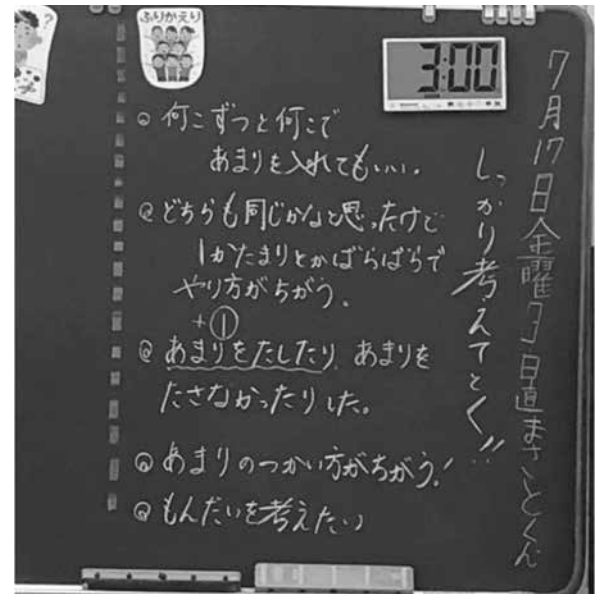 7月17日金曜日日直まさとくん
しっかり考えてとく!!
ふりかえり
3:00
何こずつと何こで
あまりを入れてもいい。
どちらも同じかなと思ったけど
1かたまりとかばらばらで
やり方がちがう。
+①
あまりをたしたり、あまりを
たさなかったりした。
あまりのつかい方がちがう!
もんだいを考えたい